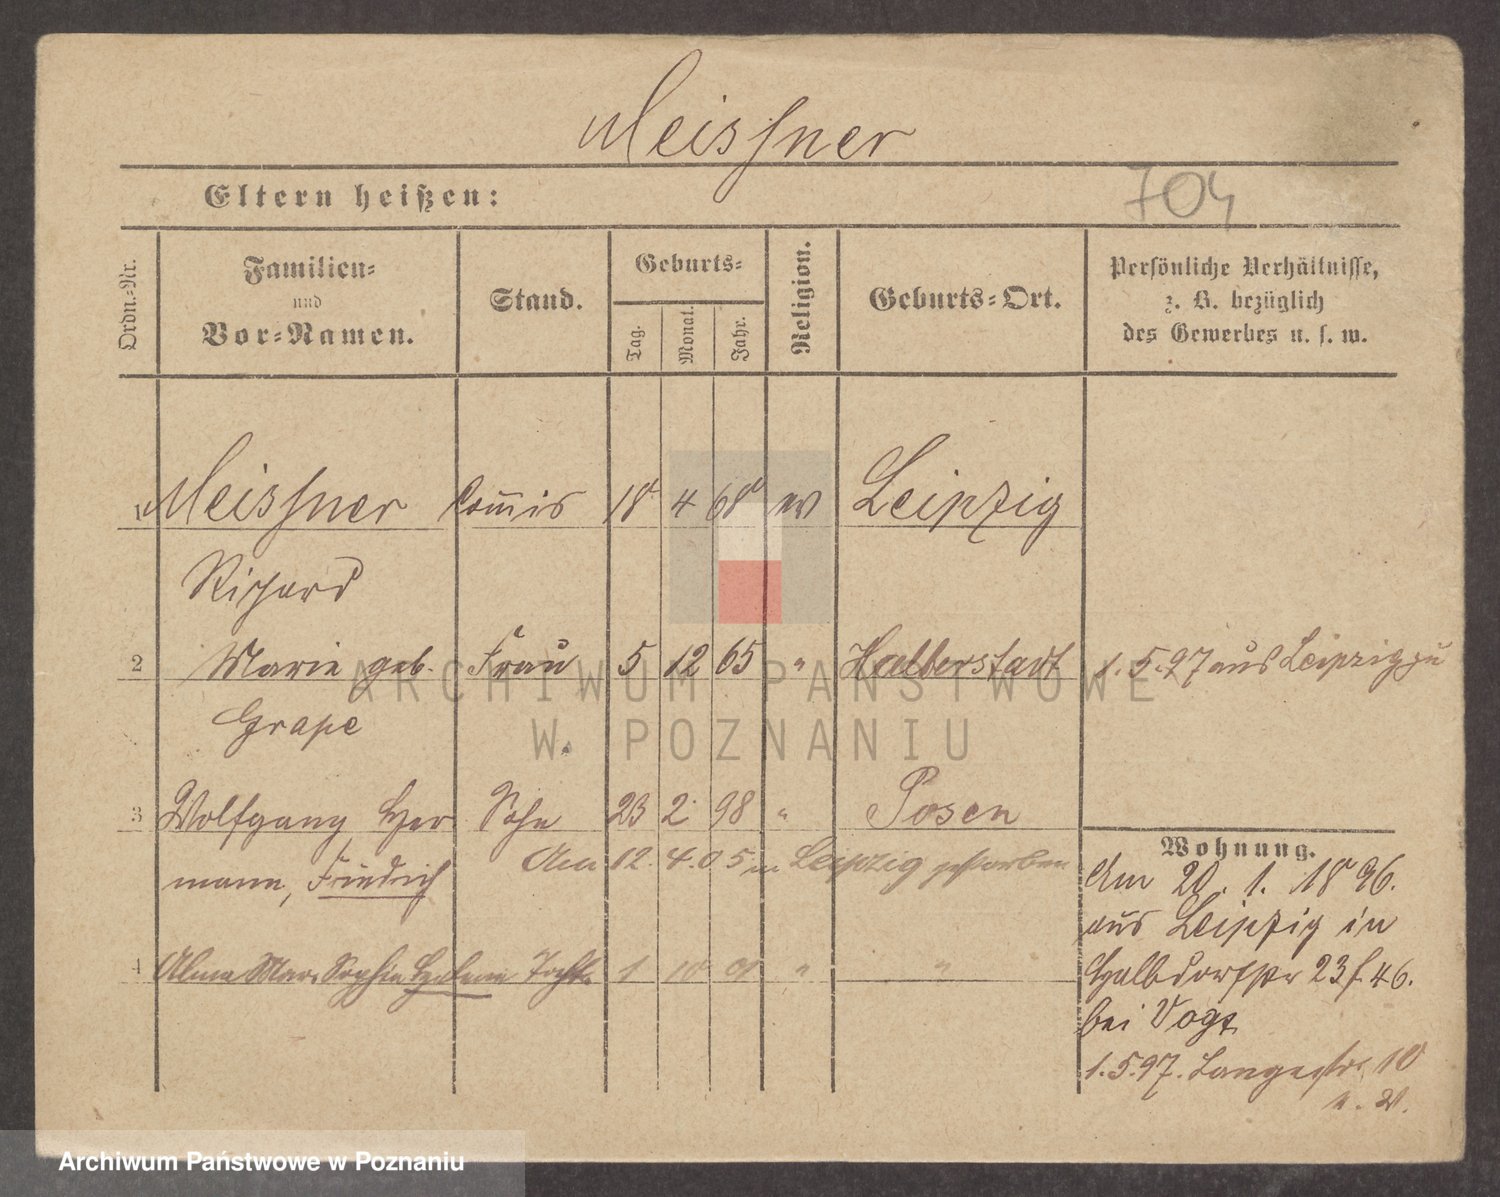 Meissner
704
Eltern heißen:
Ordn.-Nr.
Familien-
und
Vor-Namen.
Stand.
Geburts-
Tag.
Monat.
Jahr.
Religion.
Geburts-Ort.
Persönliche Verhältnisse,
z. B. bezüglich
des Gewerbes u. s. w.
1 Meissner Commis 18 4 68 ev Leipzig
Richard
2 Marie geb. Frau 5 12 65 " Halberstadt 1.5.97 aus Leipzig zu
Grape
3 Wolfgang Her Sohn 23 2 98 " Posen
mann, Friedrich
Am 12. 4. 05 in Leipzig gestorben
4 Alma Marie Sophie Helene Tochter 1 10 01 " "
Wohnung.
Am 20. 1. 1896.
aus Leipzig in
Halbdorfstr 23 46.
bei Vogt
1.5.97. Langestr. 10
ARCHIWUM PAŃSTWOWE
W POZNANIU
Archiwum Państwowe w Poznaniu